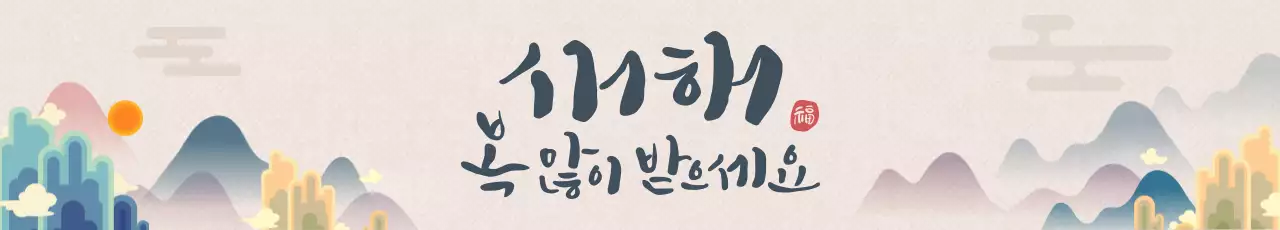 새해
福
복 많이 받으세요